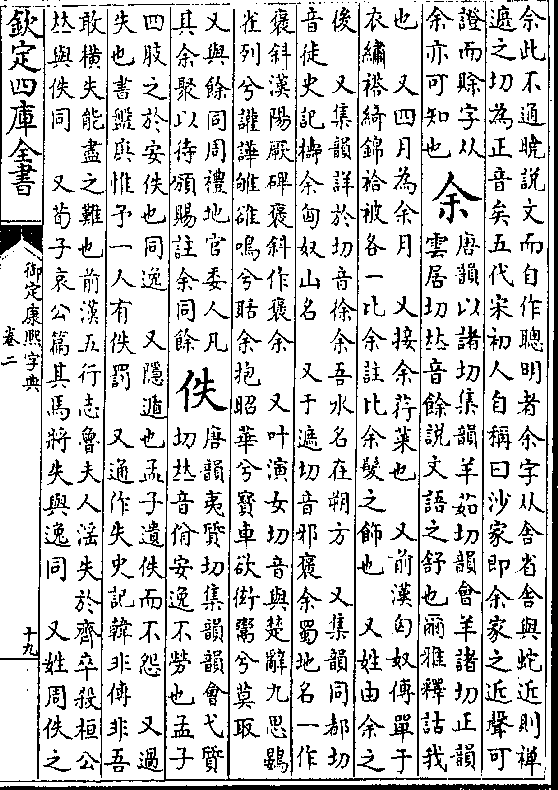 佘此不通曉說文而自作聰明者余字从舍省舍與蛇近則禪
遮之切為正音矣五代宋初人自稱曰沙家即余家之近聲可
證而賒字从
余亦可知也
余
唐韻以諸切集韻羊茹切韻會羊諸切正韻
雲居切𠀤音餘說文語之舒也爾雅釋詁我
也　又四月為余月　又接余荇菜也　又前漢匈奴傳單于
衣繡袷綺錦袷被各一比余註比余髮之飾也　又姓由余之
後　又集韻詳於切音徐余吾水名在朔方　又集韻同都切
音徒史記檮余匈奴山名　又于遮切音邪褒余蜀地名一作
褒斜漢陽厥碑褒斜作褒余　又叶演女切音與楚辭九思鶠
雀列兮讙譁雊䧱鳴兮聒余抱昭華兮寶車欲衒鬻兮莫取
又與餘同周禮地官委人凡
其余聚以待頒賜註余同餘
佚
唐韻夷質切集韻韻會弋質
切𠀤音佾安逸不勞也孟子
四肢之於安佚也同逸　又隱遁也孟子遺佚而不怨　又過
失也書盤庚惟予一人有佚罰　又通作失史記韓非傳非吾
敢橫失能盡之難也前漢五行志魯夫人淫失於齊卒殺桓公
𠀤與佚同　又荀子哀公篇其馬將失與逸同　又姓周佚之
欽定四庫全書
御定康熙字典
卷二
十九